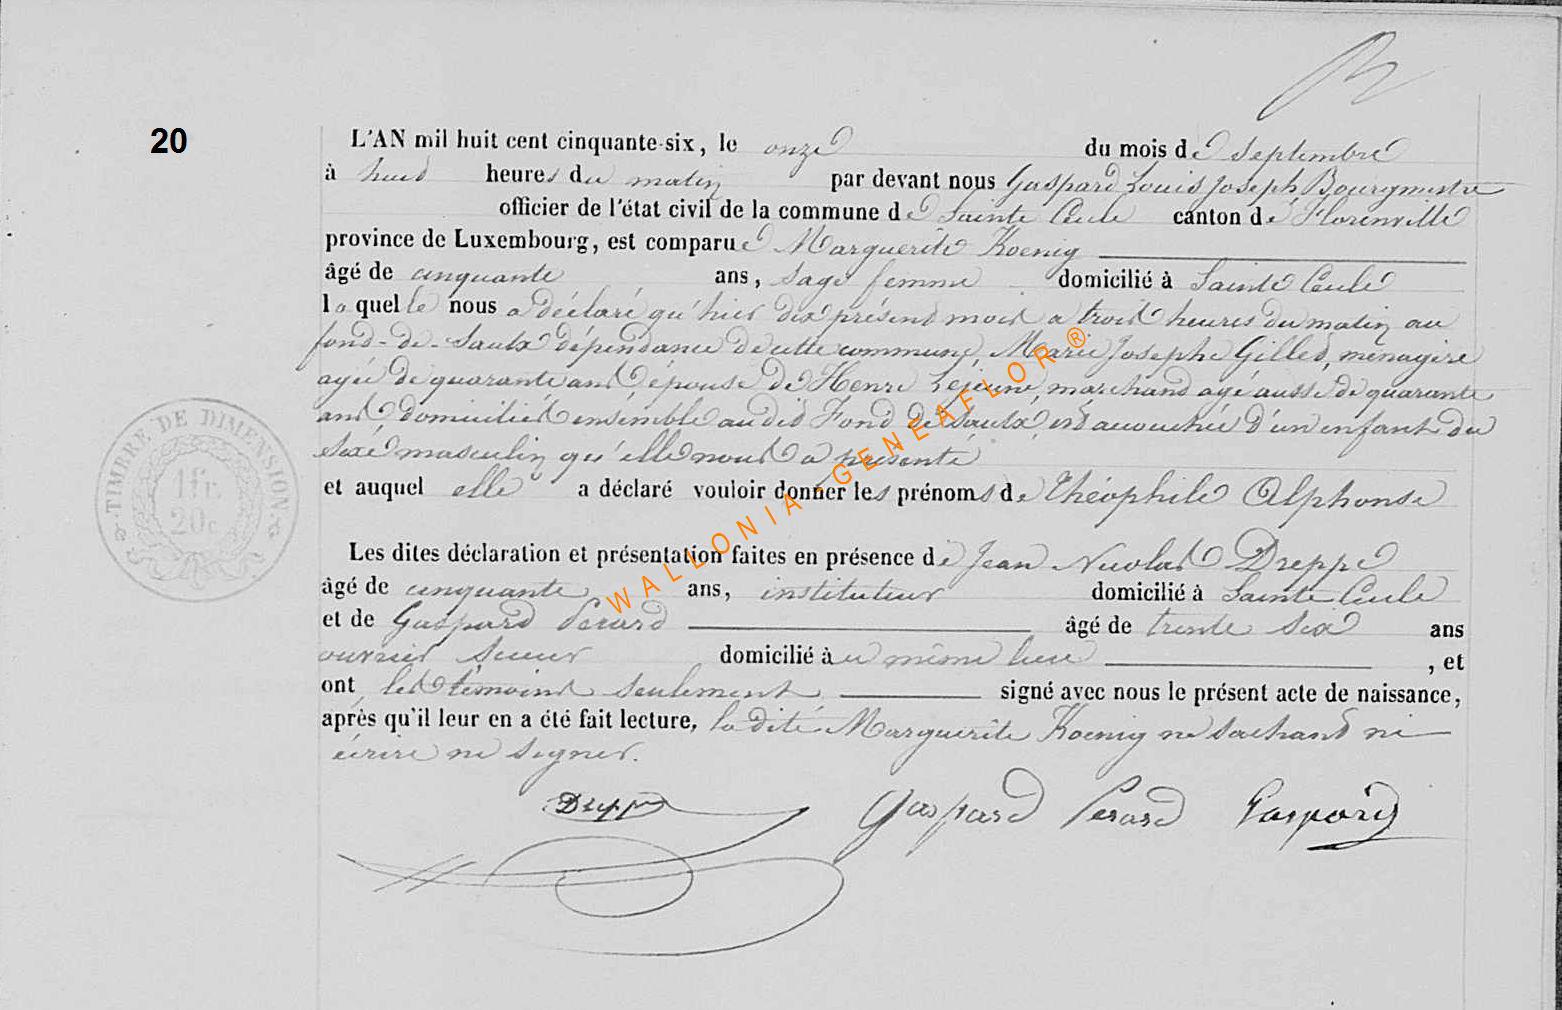 20
L'AN mil huit cent cinquante-six, le onze du mois de Septembre
à huit heures du matin par devant nous Gaspard Louis Joseph, Bourgmestre
officier de l'état civil de la commune de Sainte Cecile canton de Florenville
province de Luxembourg, est comparue Marguerite Koenig
âgé de cinquante ans, sage femme domicilié à Sainte Cecile
laquelle nous a déclaré qu'hier dix présent mois a trois heures du matin au
fond-de-Saulx dépendance de cette commune, Marie Josephe Gilles, ménagère
agée de quarante ans, épouse de Henri Lejeune, marchand agé aussi de quarante
ans, domiciliés ensemble audit Fond de Saulx, est accouchée d'un enfant du
sexe masculin qu'elle nous a présenté
et auquel elle a déclaré vouloir donner les prénoms de Théophile Alphonse
Les dites déclaration et présentation faites en présence de Jean Nicolas Dreppe
âgé de cinquante ans, instituteur domicilié à Sainte Cecile
et de Gaspard Perard âgé de trente six ans
ouvrier scieur domicilié au même lieu , et
ont les témoins seulement signé avec nous le présent acte de naissance,
après qu'il leur en a été fait lecture, la dite Marguerite Koenig ne sachant ni
écrire ne signer.
Dreppe Gaspard Perard Gaspard
TIMBRE DE DIMENSION
1fr.
20c
WALLONIA - GENEAFLOR ®